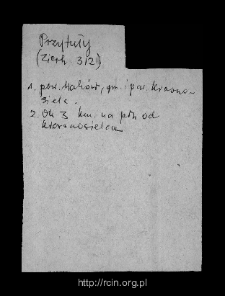 Przytuły
(Ziech. 3/2)
1. pow. Maków, gm. i par. Krasno-
sielc.
2. Ok. 3 km. na płn od
Krasnosielca
http://rcin.org.pl